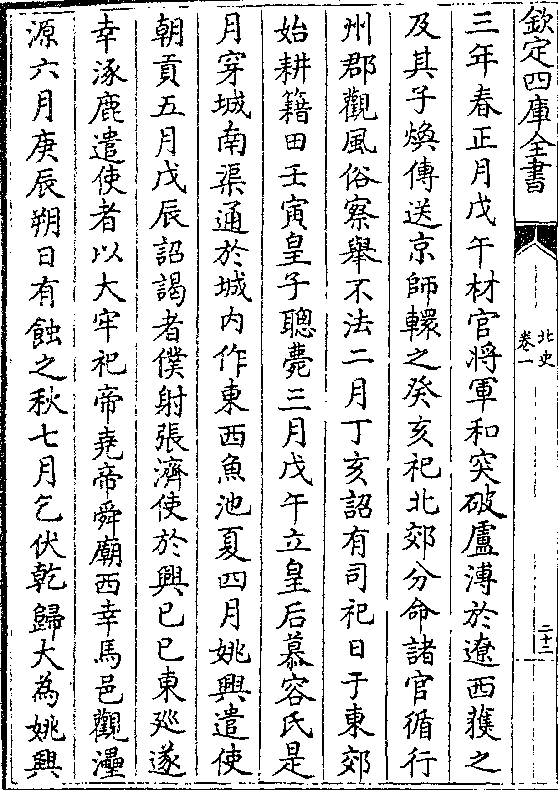 欽定四庫全書
北史
卷一
二十二
三年春正月戊午材官將軍和突破盧溥於遼西獲之
及其子煥傳送京師轘之癸亥祀北郊分命諸官循行
州郡觀風俗察舉不法二月丁亥詔有司祀日于東郊
始耕籍田壬寅皇子聰薨三月戊午立皇后慕容氏是
月穿城南渠通於城内作東西魚池夏四月姚興遣使
朝貢五月戊辰詔謁者僕射張濟使於興已巳東廵遂
幸涿鹿遣使者以大牢祀帝堯帝舜廟西幸馬邑觀㶟
源六月庚辰朔日有蝕之秋七月乞伏乾歸大為姚興